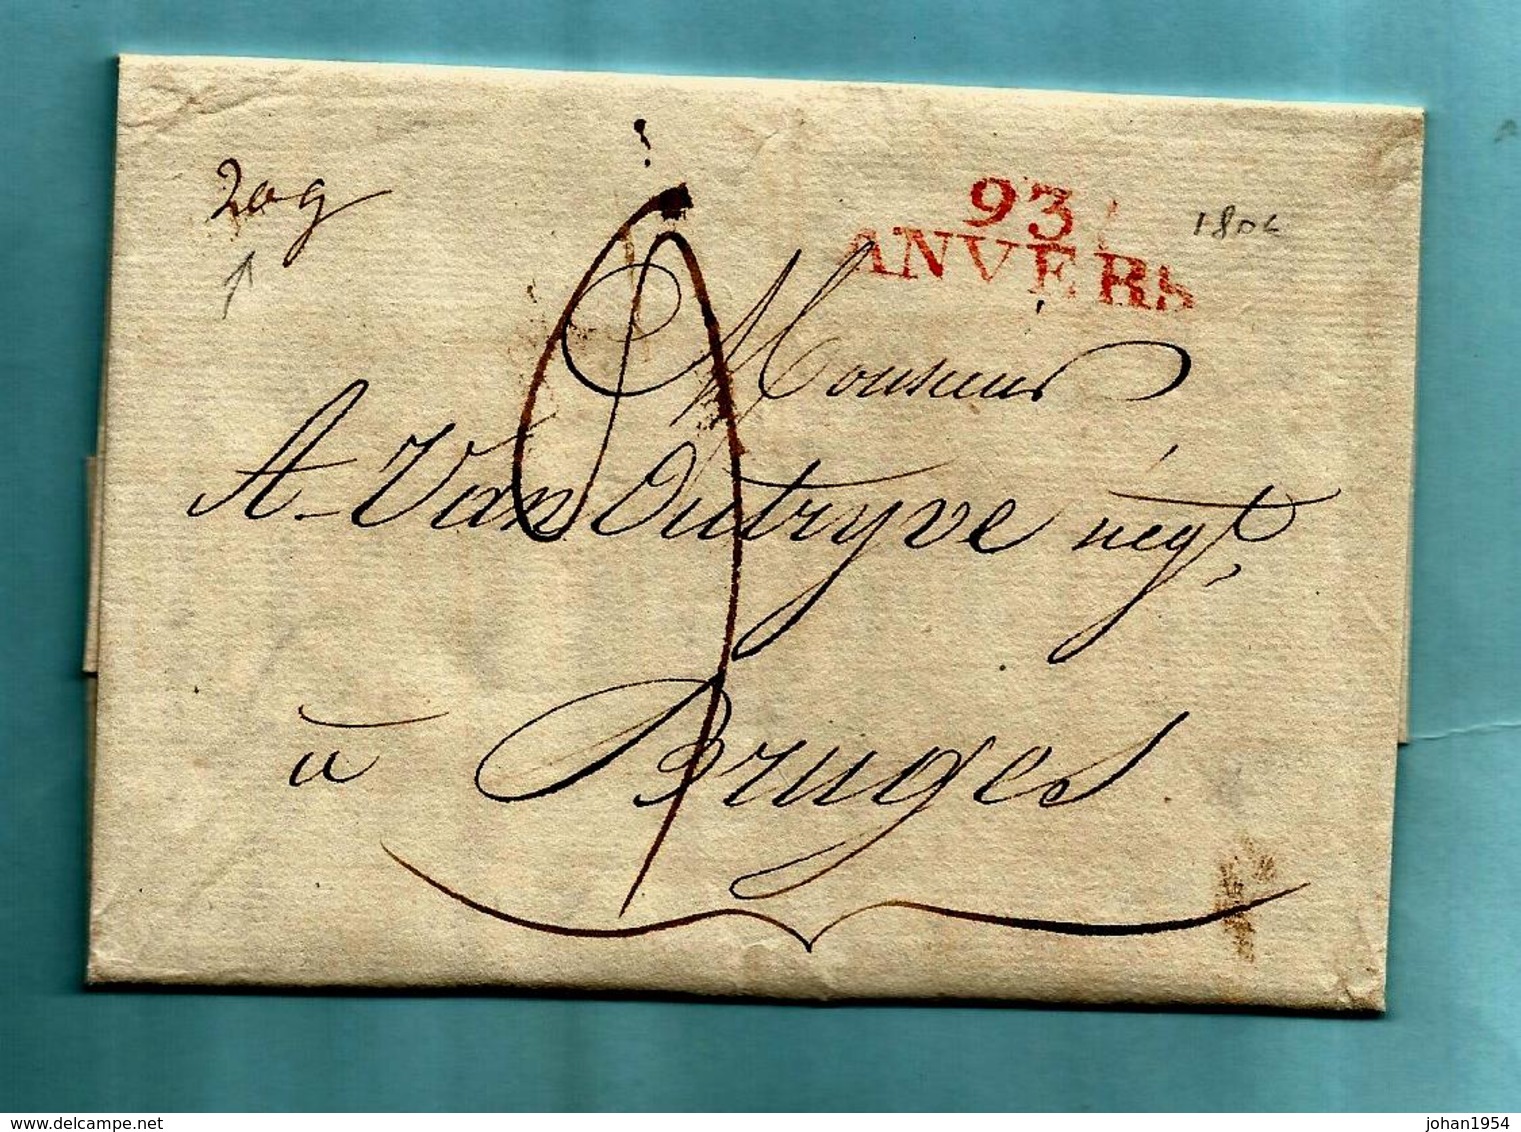 20g
93
ANVERS
1806
Monsieur
A. Van Outryve negt.
à Bruges
delcampe.net
johan1954